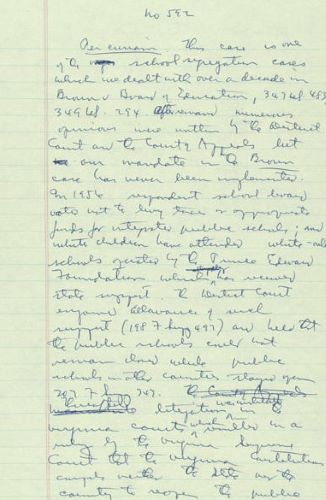 No 592
Per curiam. This case is one
of the school segregation cases
which we dealt with over a decade in
Brown v Board of Education, 347 US 483
349 US 294. numerous
opinions were written by the District
Court and the County Appeals but
our mandate in the Brown
case has never been implemented.
In 1956 respondent school board
voted not to levy taxes or appropriate
funds for integrated public schools; and
white children have attended white-only
schools operated by the Prince Edward
Foundation which receives
state support. The District Court
enjoined allowance of such
support (198 F Supp 497) and held that
the public schools could not
remain closed while public
schools in other counties stayed open
207 F Supp 349. The County Appeals
litigation in
Virginia courts which resulted in a
ruling by the Virginia Supreme
Court that the Virginia Constitution
compels neither the State nor the
county to reopen the public